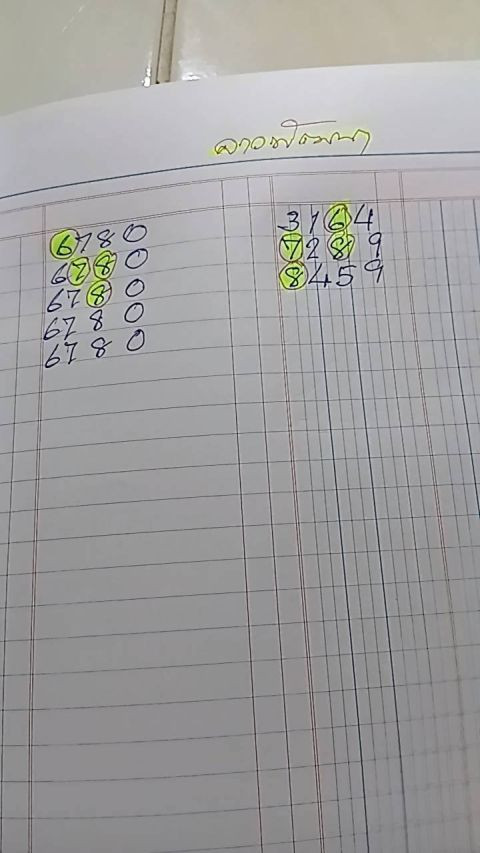 ลาวพัฒนา
6780 3164
6780 7289
6780 8459
6780
6780